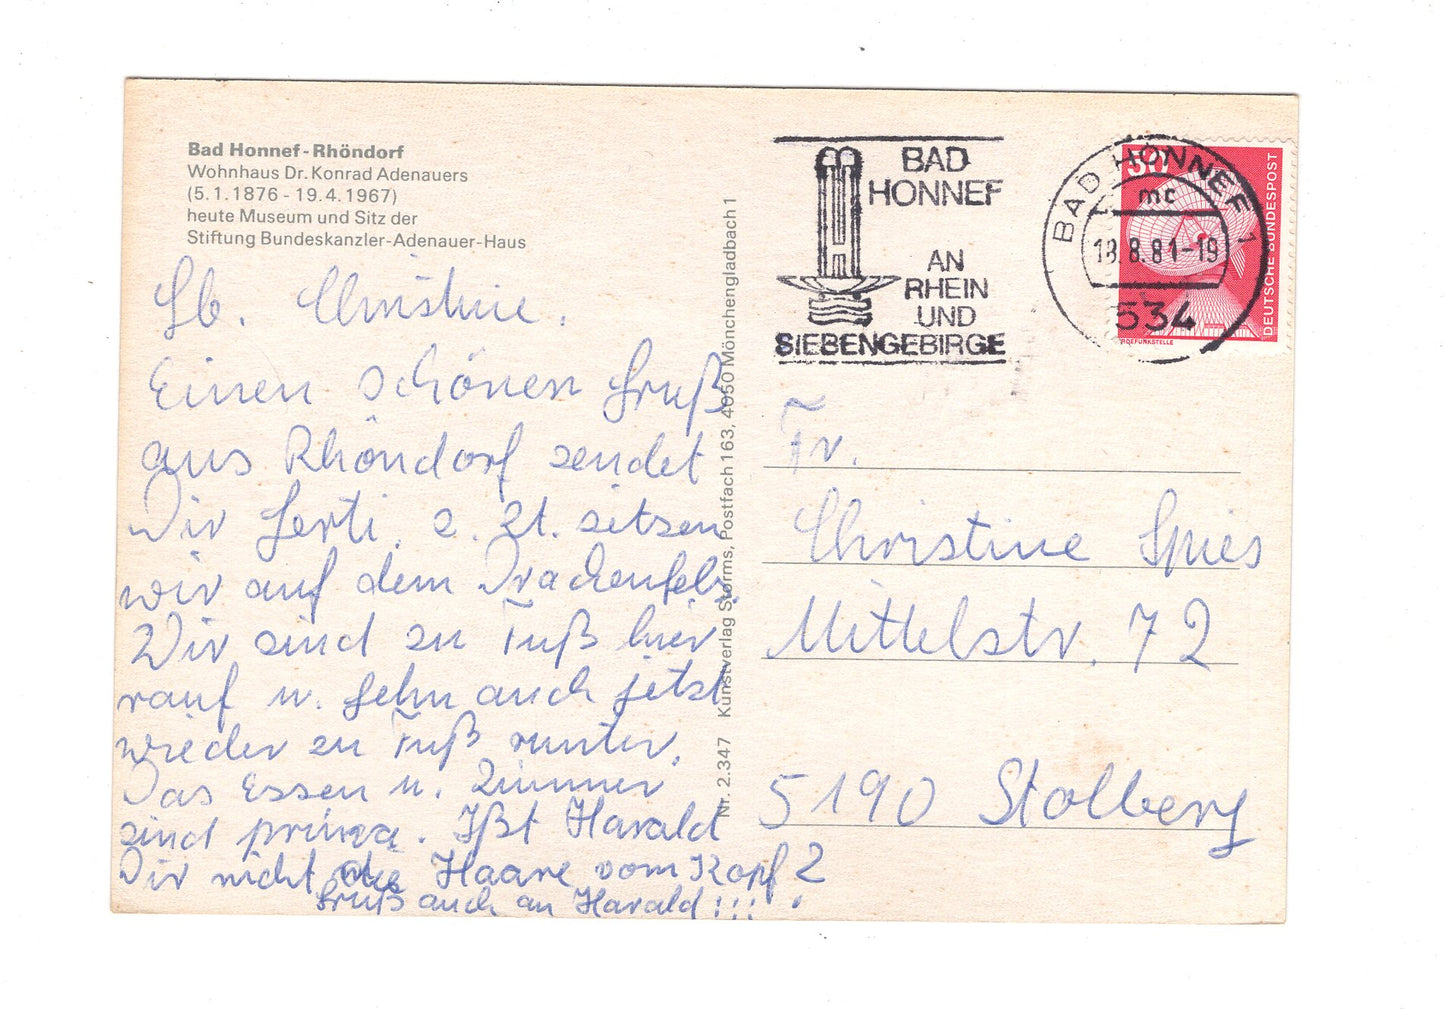 Bad Honnef-Rhöndorf
Wohnhaus Dr. Konrad Adenauers
(5.1.1876 - 19.4.1967)
heute Museum und Sitz der
Stiftung Bundeskanzler-Adenauer-Haus
Lb. Christine.
Einen schönen Gruß
aus Rhöndorf sendet
Dir Gerti. z. Zt. sitzen
wir auf dem Drachenfels.
Wir sind zu Fuß hier
rauf u. gehn auch jetzt
wieder zu Fuß runter.
Das Essen u. Zimmer
sind prima. Ißt Harald
Dir nicht die Haare vom Kopf?
Gruß auch an Harald!!!
Nr. 2.347 Kunstverlag Storms, Postfach 163, 4050 Mönchengladbach 1
BAD
HONNEF
AN
RHEIN
UND
SIEBENGEBIRGE
BAD HONNEF 1
mc
18.8.81-19
534
50
DEUTSCHE BUNDESPOST
ERDEFUNKSTELLE
Fr.
Christine Spies
Mittelstr. 72
5190 Stolberg